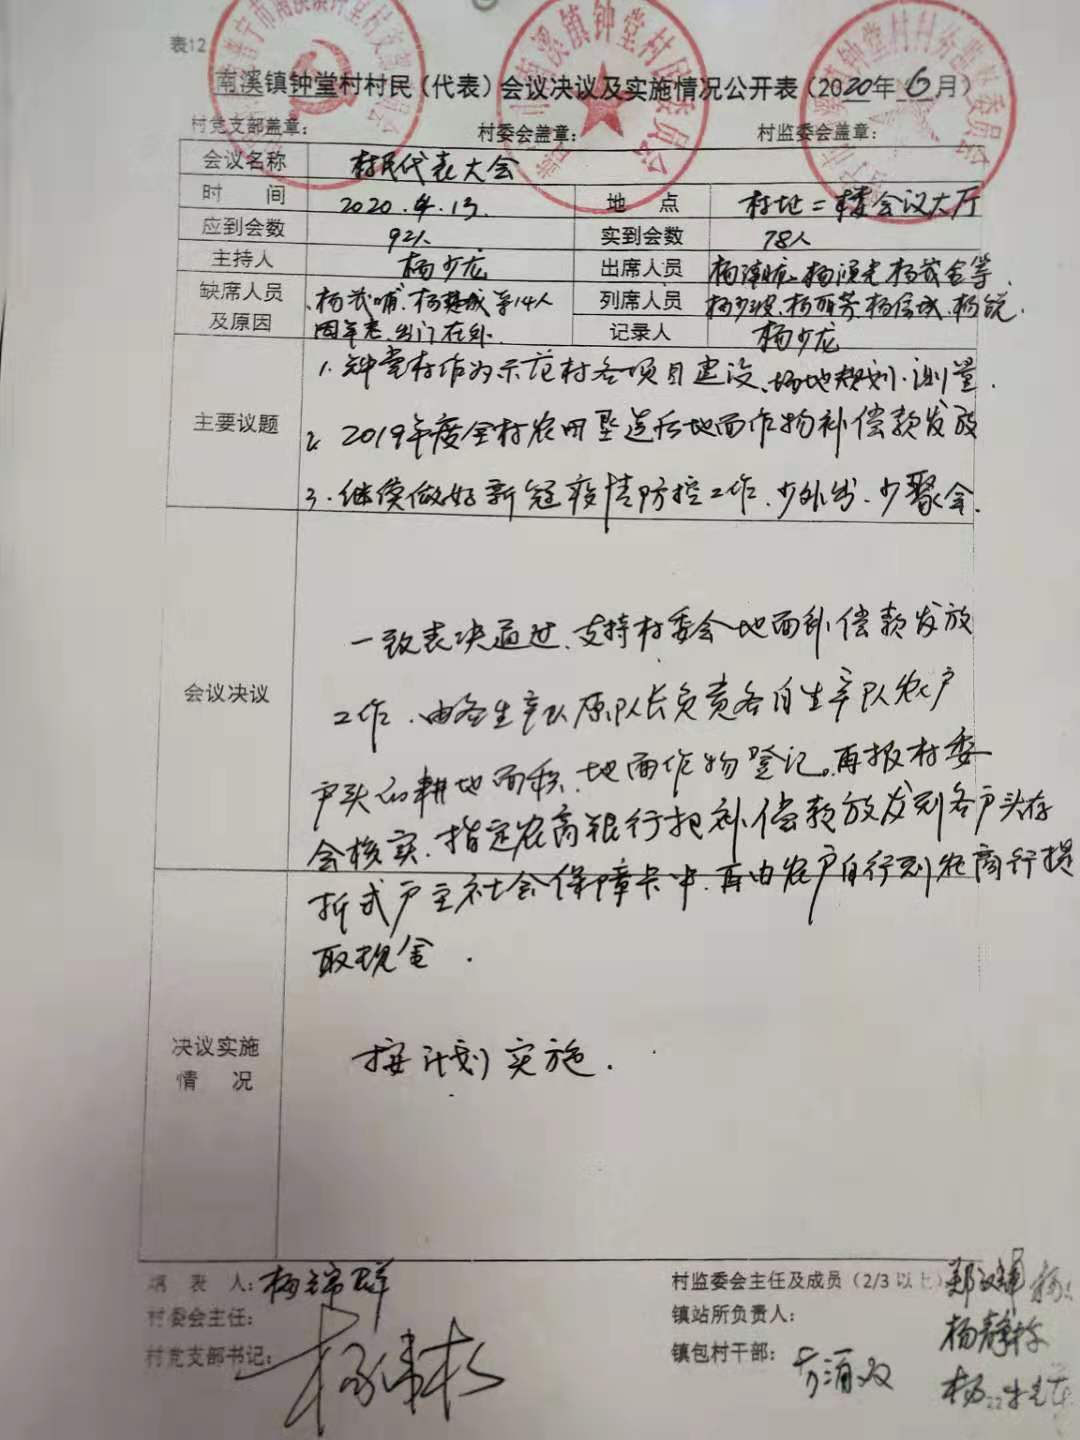 表12
南溪镇钟堂村村民（代表）会议决议及实施情况公开表（2020年6月）
村党支部盖章： 村委会盖章： 村监委会盖章：
会议名称 村民代表大会
时 间 2020.4.13. 地 点 村址二楼会议大厅
应到会数 92人 实到会数 78人
主持人 杨少龙 出席人员
缺席人员及原因 等14人 因年老、出门在外. 列席人员
记录人 杨少龙
主要议题
1. 钟堂村作为示范村各项目建设、场地规划、测量.
2. 2019年度全村农田垦造后地面作物补偿款发放
3. 继续做好新冠疫情防控工作、少外出、少聚会.
会议决议
一致表决通过、支持村委会地面补偿款发放
工作、由各生产队原队长负责各自生产队农户
户头的耕地面积、地面作物登记。再报村委
会核实、指定农商银行把补偿款放发到各户头存
折或户主社会保障卡中、再由农户自行到农商行提
取现金.
决议实施情 况
按计划实施.
填 表 人： 村监委会主任及成员（2/3以上）
村委会主任： 镇站所负责人：
村党支部书记： 镇包村干部：